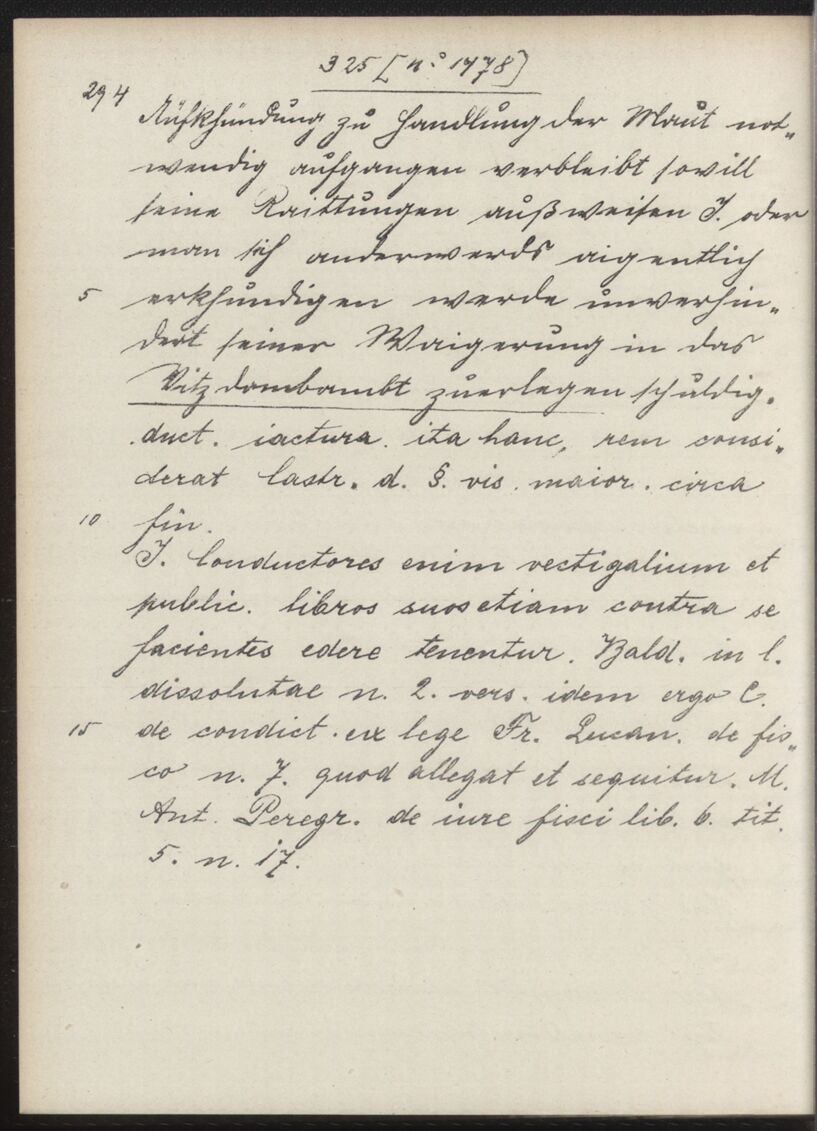 325 [nº 1778]
294
Aufkhündung zu Handlung der Maut not-
wendig aufgangen verbleibt sovill
seine Raittungen außweisen J. oder
man sich anderwerds aigentlich
5 erkhundigen werde unverhin-
dert seiner Waigerung in das
Vitzdombambt zuerlegen schuldig.
duct. iactura. ita hanc, rem consi-
derat Castr. d. §. vis. maior. circa
10 fin.
J. Conductores enim vectigalium et
public. libros suos etiam contra se
facientes edere tenentur. Bald. in l.
dissolutae n. 2. vers. idem ergo C.
15 de condict. ex lege Fr. Lucan. de fis-
co n. 7. quod allegat et sequitur. M.
Ant. Peregr. de iure fisci lib. 6. tit.
5. n. 17.